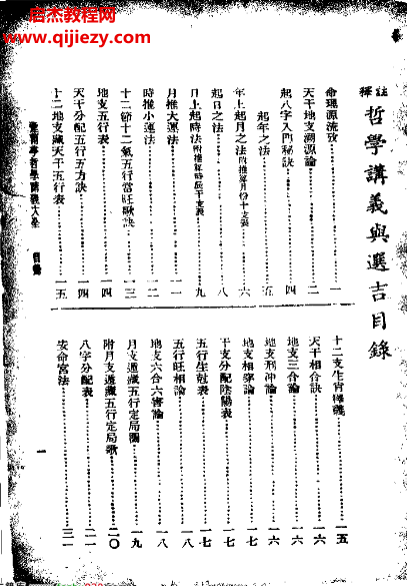 启杰教程网
www.qijiezy.com
註釋哲學講義與選吉目錄
命理源流攷 一
天干地支溯源論 二
起八字入門秘訣 四
起年之法 五
年上起月之法 六
起日之法 八
日上起時法 九
月推大運法 一一
時推小運法 一二
十二節十二氣五行當旺歌訣 一三
地支五行表 一四
天干分配五行五方訣 一四
十二地支藏天干五行表 一五
十二支生肖 一五
天干相合訣 一六
地支三合論 一六
地支刑沖論 一六
地支相穿論 一七
干支分配陰陽表 一七
五行生尅表 一七
五行旺相論 一八
地支六合六害論 一八
月支遁藏五行定局圖 一九
附月支遁藏五行定局歌 二〇
八字分配表 二一
安命宮法 三一
哲學講義大全
目錄
一